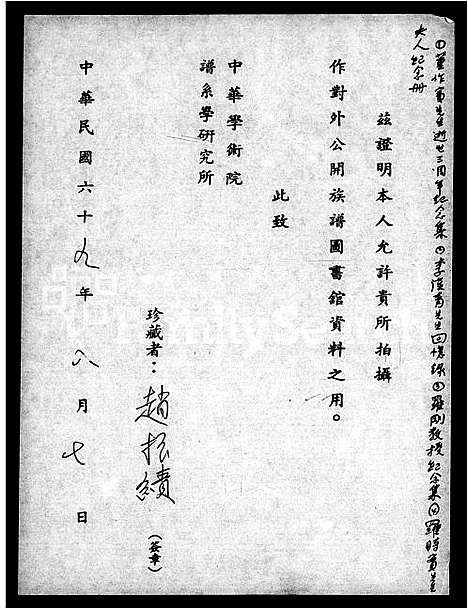 ①董作賓先生逝世三周年紀念集②李漢魂先生回憶錄③羅剛教授紀念集④羅時實先生
夫人紀念冊
茲證明本人允許貴所拍攝
作對外公開族譜圖書館資料之用。
此致
中華學術院
譜系學研究所
珍藏者：趙振績（簽章）
中華民國六十九年八月七日